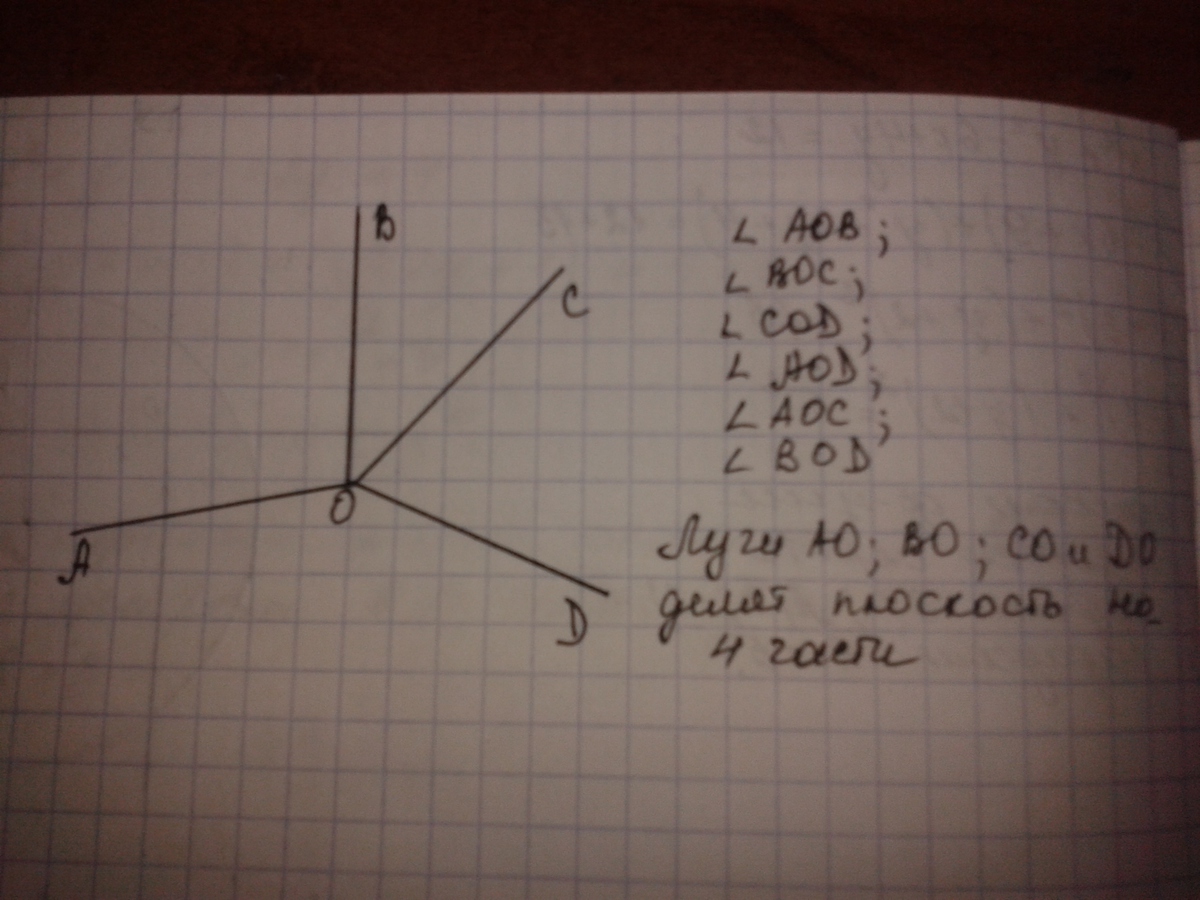 B
C
O
A
D
∠ AOB;
∠ BOC;
∠ COD;
∠ AOD;
∠ AOC;
∠ BOD
Лучи AO; BO; CO и DO
делят плоскость на
4 части